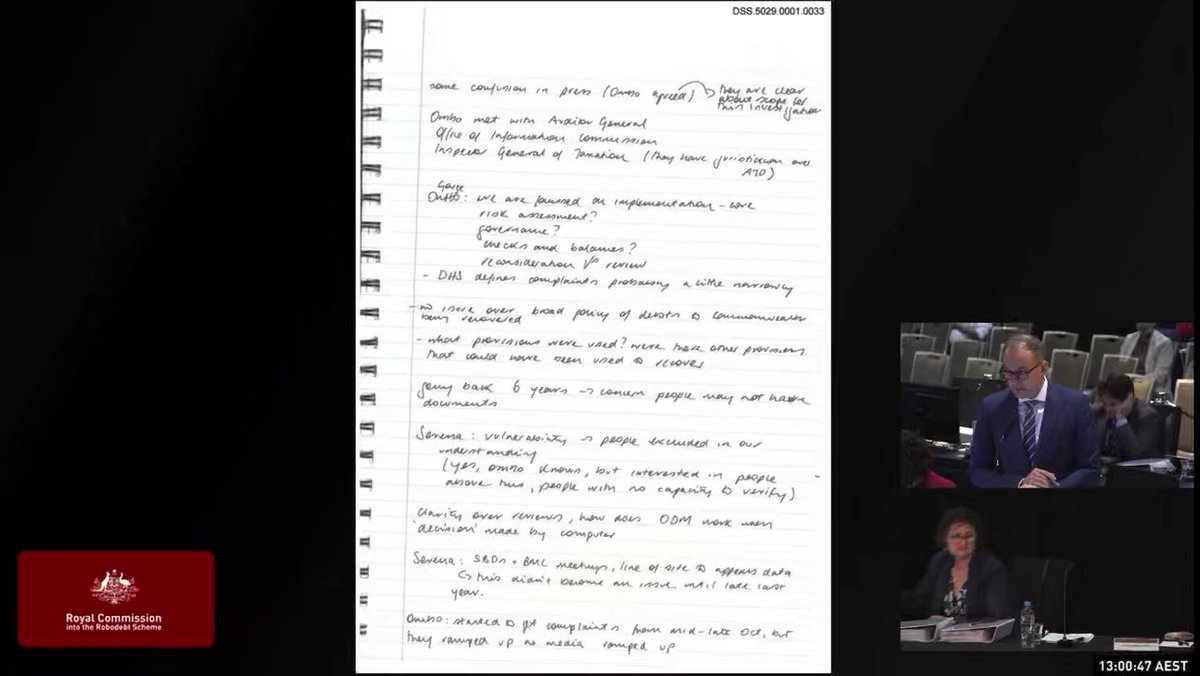 DSS.5029.0001.0033
some confusion in press (Ombo agreed) → they are clear
about scope for
this investigation
Ombo met with Auditor General
Office of Information commission
Inspector General of Taxation (they have jurisdiction over
ATO)
Ombo: we are focussed on implementation - core
risk assessment?
governance?
checks and balances?
reconsideration vs review
- DHS defines complaints probably a little narrowly
- no issue over broad policy of debts to commonwealth
being recovered
- what provisions were used? were there other provisions
that could have been used to recover
going back 6 years → concern people may not have
documents
Serena: vulnerability → people excluded in our
understanding
(yes, ombo knows, but interested in people
above this, people with no capacity to verify)
clarity over reviews, how does ODM work when
'decision' made by computer
Serena: SBDs + meetings, line of site to appeals data
↳ this didn't become an issue until late last
year.
Ombo: started to get complaints from mid-late Oct, but
they ramped up as media ramped up
Royal Commission
into the Robodebt Scheme
13:00:47 AEST